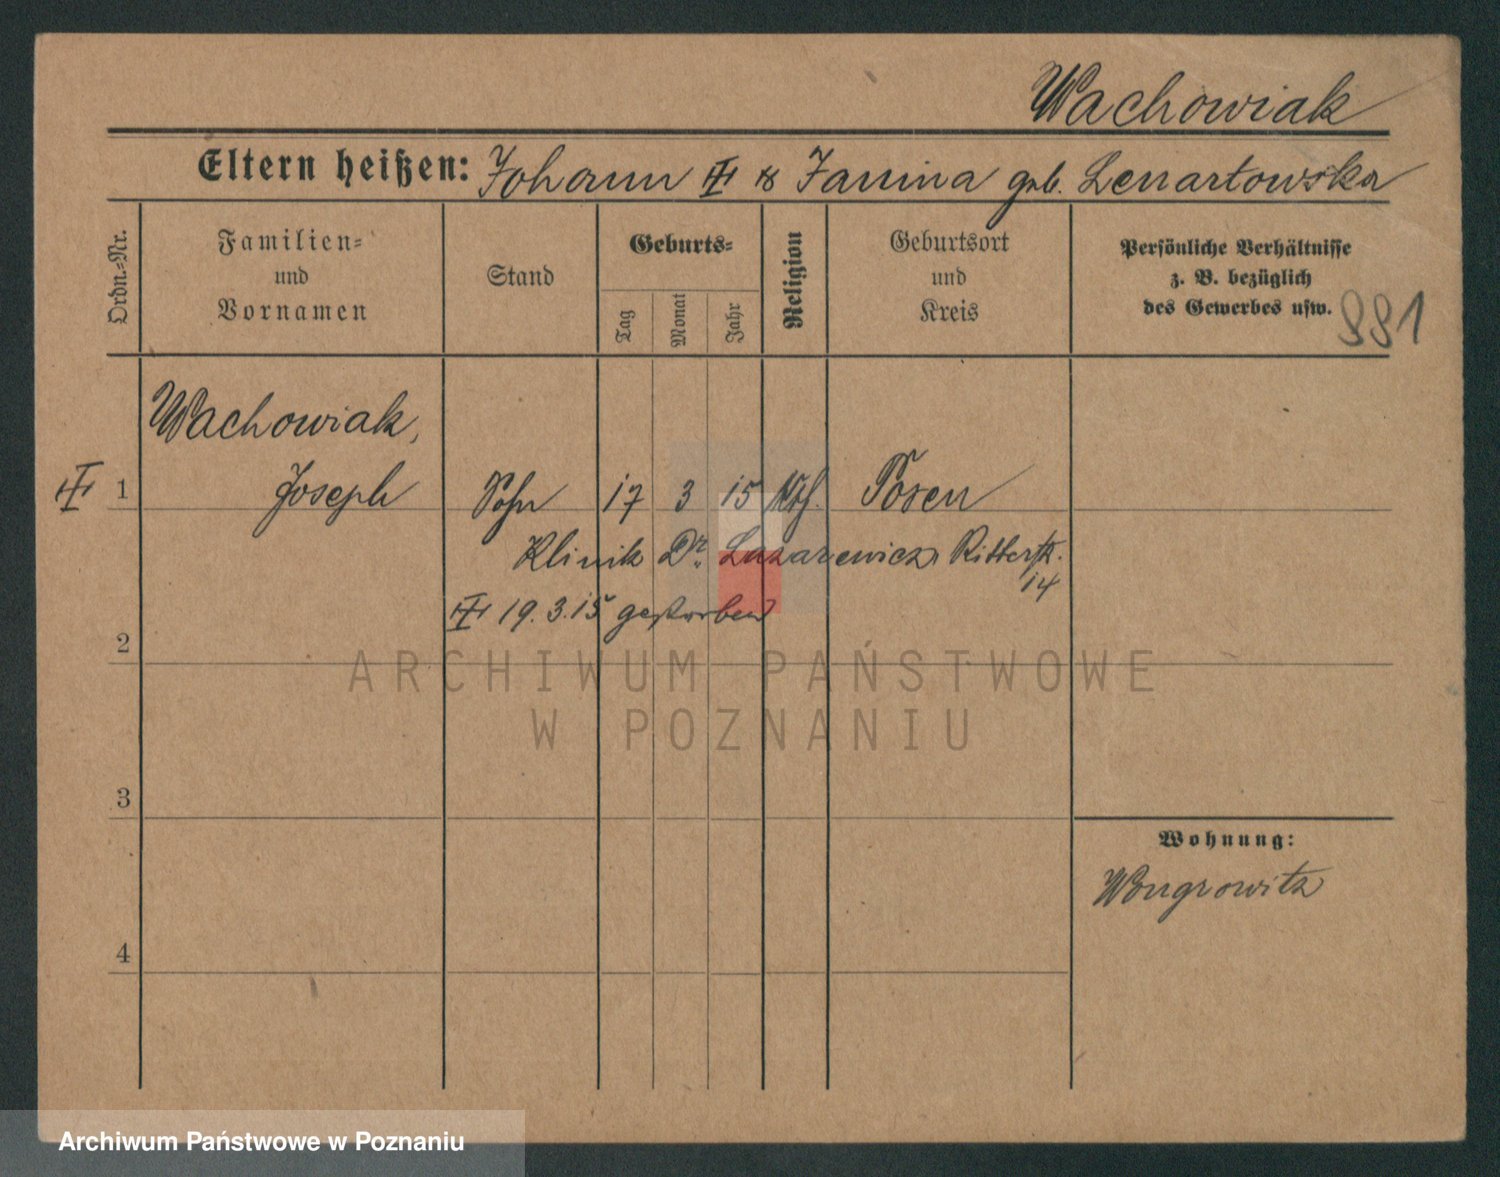 Wachowiak
Eltern heißen: Johann & Janina geb. Lenartowska
Ordn.=Nr.
Familien=
und
Vornamen
Stand
Geburts=
Tag
Monat
Jahr
Religion
Geburtsort
und
Kreis
Persönliche Verhältnisse
z. B. bezüglich
des Gewerbes usw.
881
Wachowiak,
1 Joseph Sohn 17 3 15 Kth. Posen
Klinik Dr. Lazarewicz Ritterstr.
14
19.3.15 gestorben
2
ARCHIWUM PAŃSTWOWE
W POZNANIU
3
Wohnung:
Wongrowitz
4
Archiwum Państwowe w Poznaniu